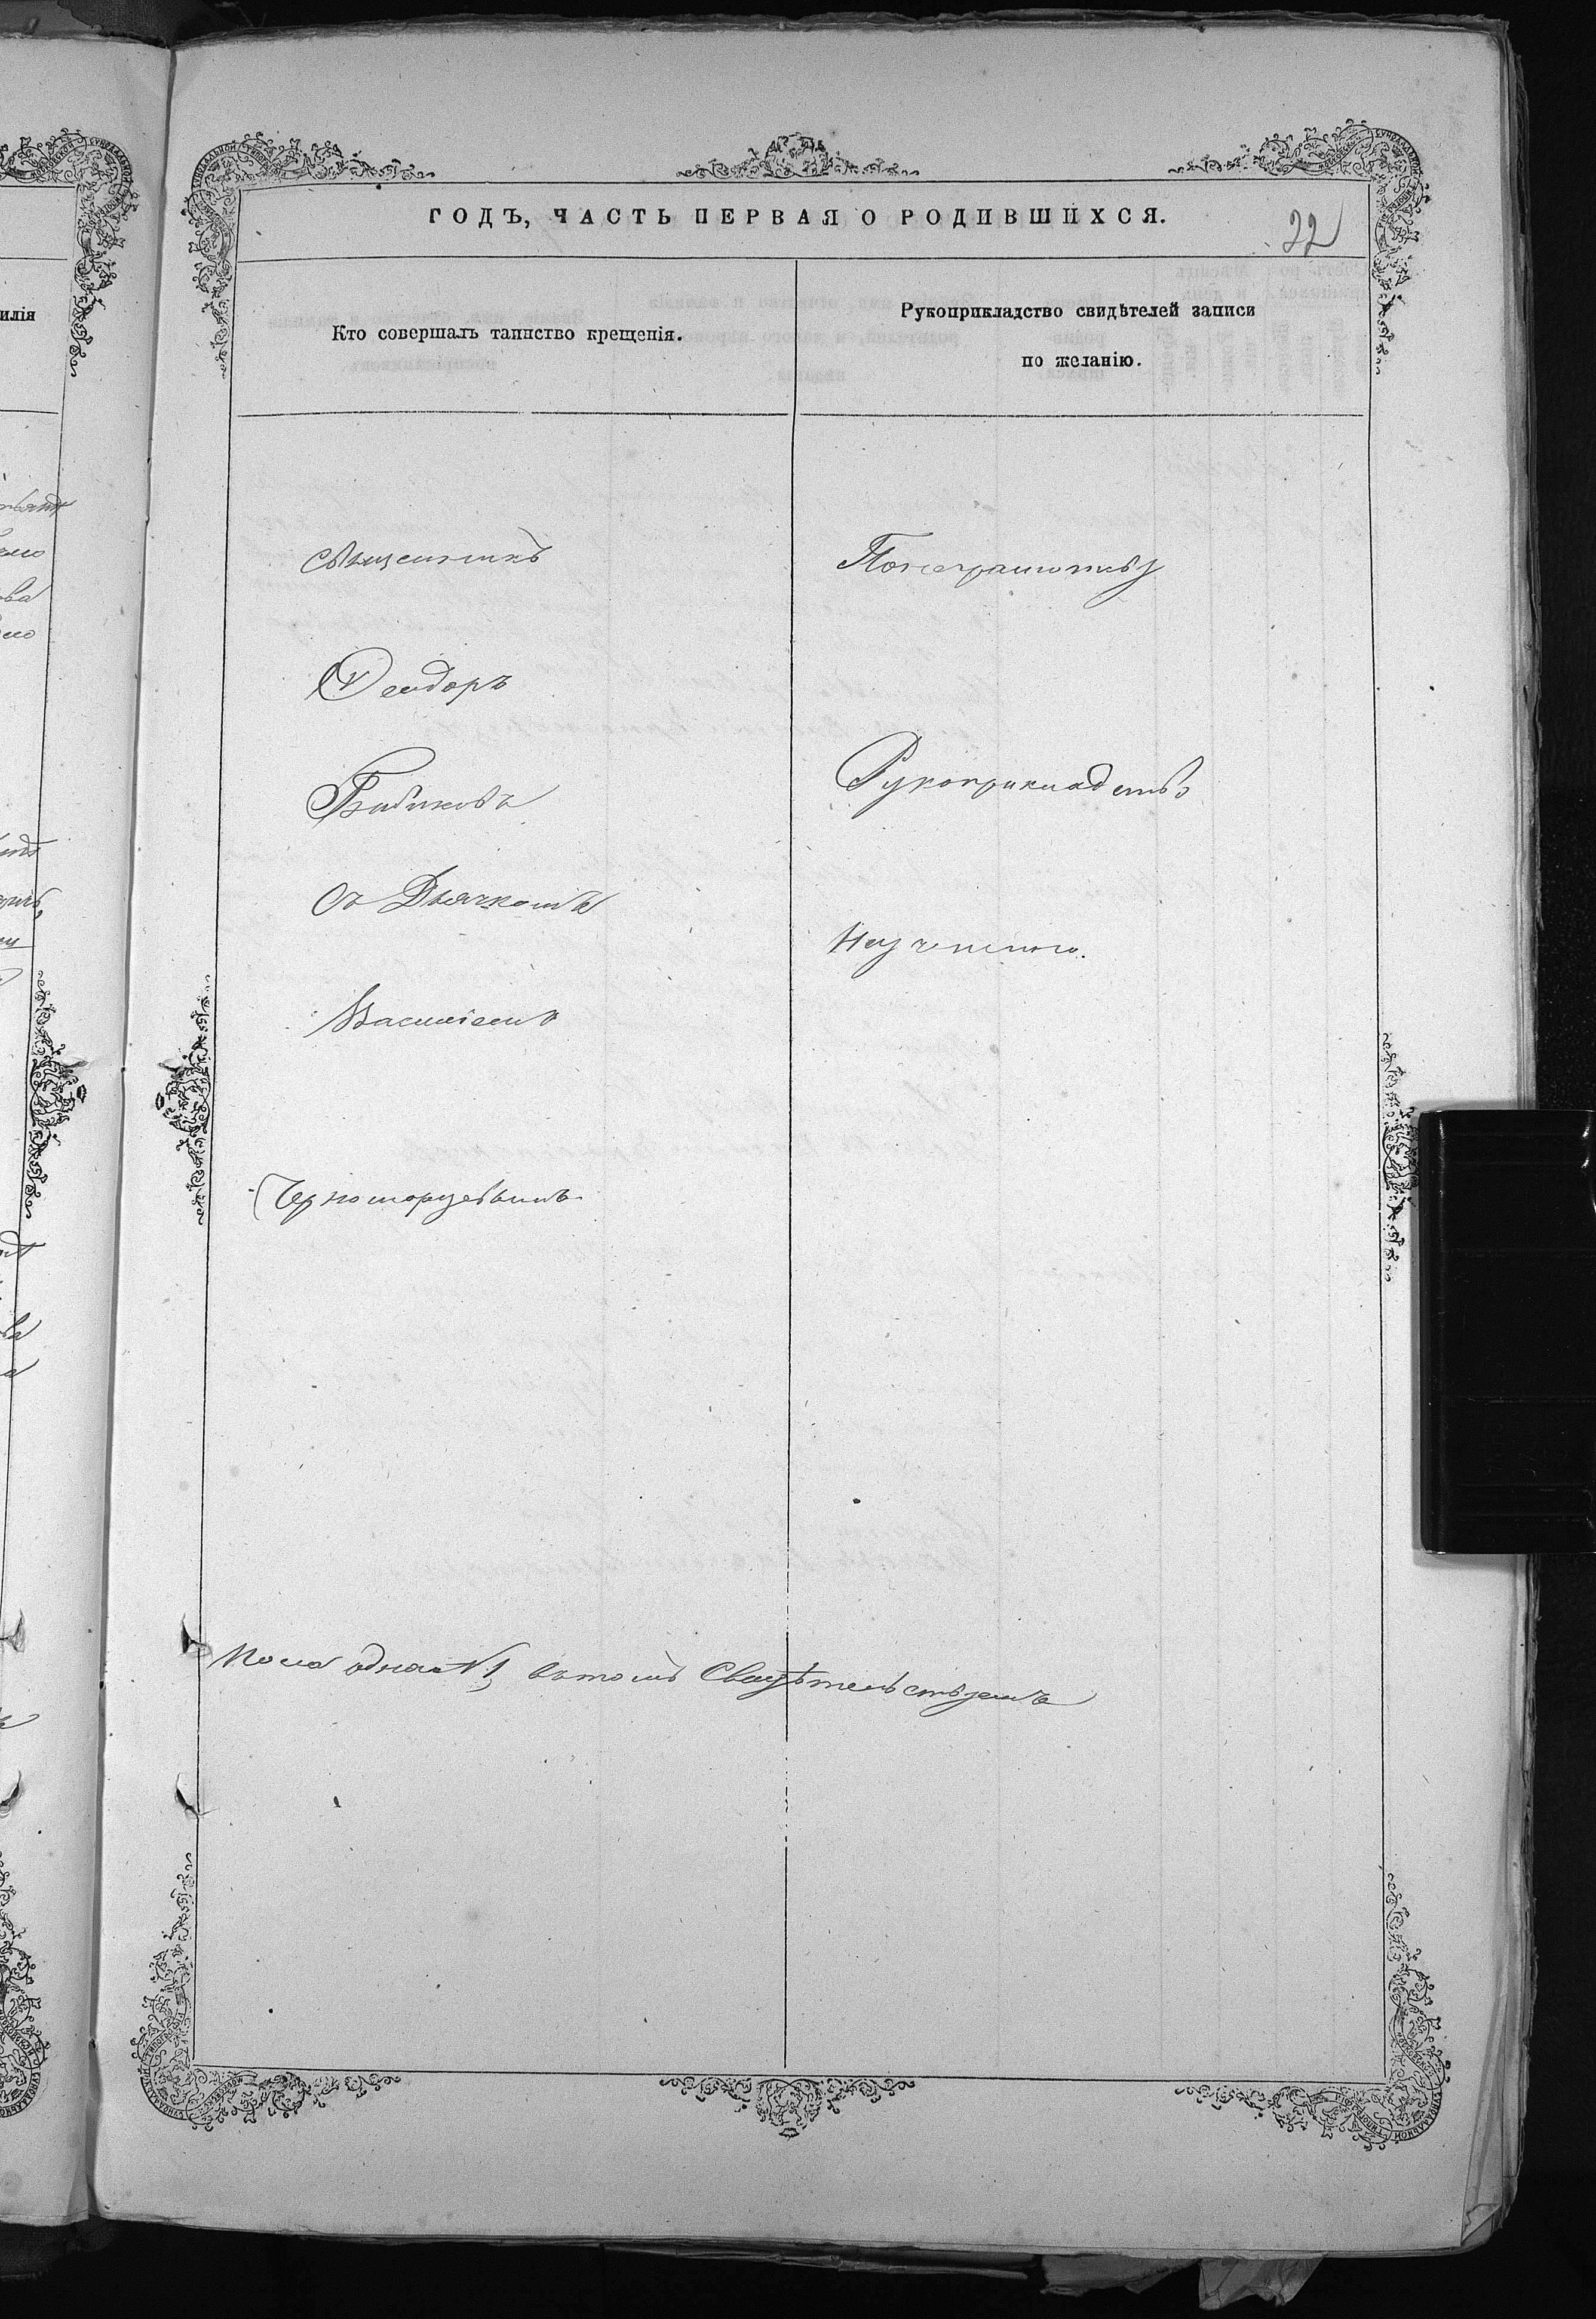 ГОДЪ, ЧАСТЬ ПЕРВАЯ О РОДИВШИХСЯ.
22
Кто совершалъ таинство крещенія.
Рукоприкладство свидѣтелей записи
по желанію.
илія
Священникъ
Ѳеодоръ
Бибиковъ
съ Дьячкомъ
Василіемъ
Черноморцевымъ
По неграмотству
Рукоприкладств
Неучинено.
въ томъ Свидѣтельствуемъ